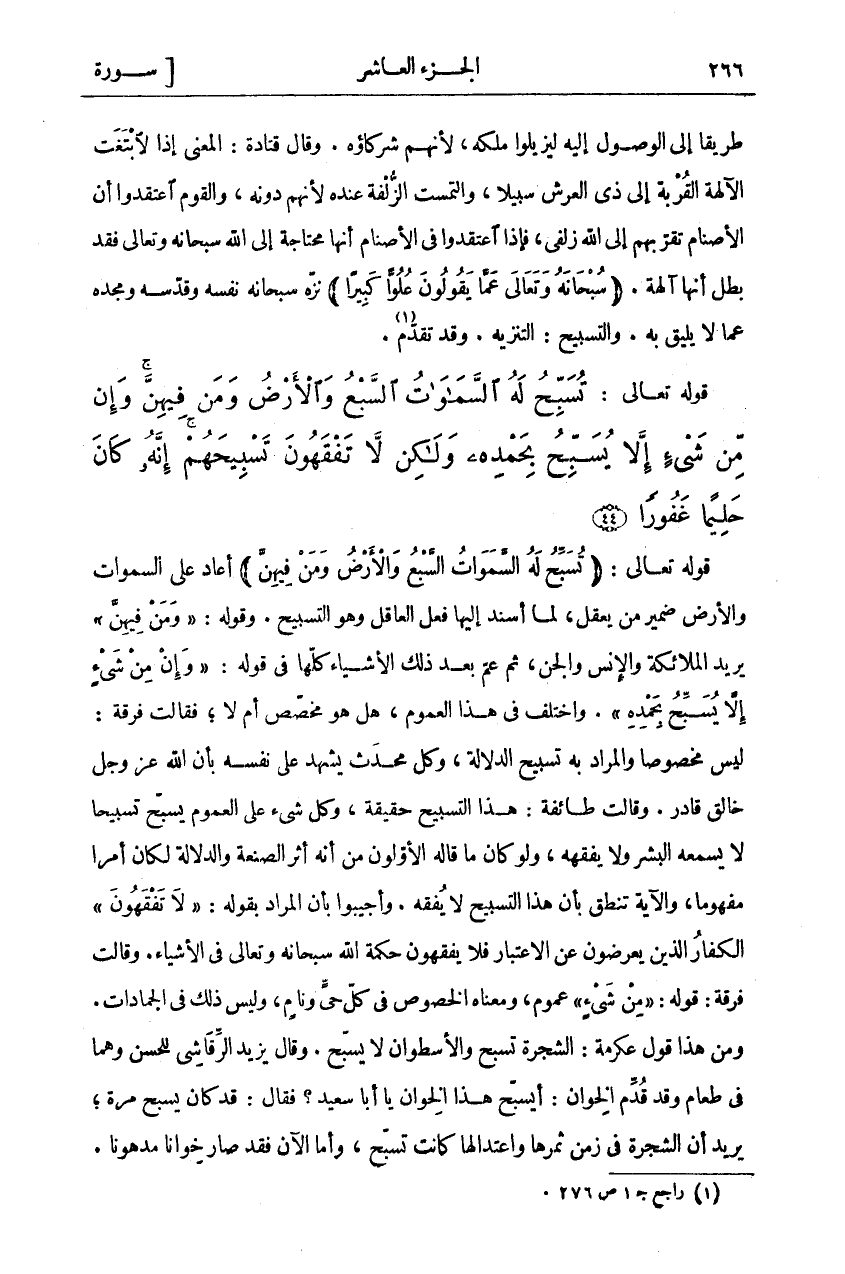 ٢٦٦ الجزء العاشر [ سورة
طريقا إلى الوصول إليه ليزيلوا ملكه، لأنهم شركاؤه . وقال قتادة : المعنى إذا لٱبْتَغَت
الآلهة القُرْبة إلى ذى العرش سبيلا ، والتمست الزُّلْفة عنده لأنهم دونه ، والقوم ٱعتقدوا أن
الأصنام تقرّبهم إلى الله زلفى، فإذا ٱعتقدوا فى الأصنام أنها محتاجة إلى الله سبحانه وتعالى فقد
بطل أنها آلهة . ﴿ سُبْحَانَهُ وَتَعَالَى عَمَّا يَقُولُونَ عُلُوًّا كَبِيرًا ﴾ نزّه سبحانه نفسه وقدّسه ومجده
عما لا يليق به . والتسبيح : التنزيه . وقد تقدّم (١) .
قوله تعالى : تُسَبِّحُ لَهُ ٱلسَّمَـٰوَٰتُ ٱلسَّبْعُ وَٱلْأَرْضُ وَمَن فِيهِنَّ ۚ وَإِن
مِّن شَىْءٍ إِلَّا يُسَبِّحُ بِحَمْدِهِۦ وَلَـٰكِن لَّا تَفْقَهُونَ تَسْبِيحَهُمْ ۚ إِنَّهُۥ كَانَ
حَلِيمًا غَفُورًا ﴿٤٤﴾
قوله تعالى : ﴿ تُسَبِّحُ لَهُ السَّمَوَاتُ السَّبْعُ وَالْأَرْضُ وَمَنْ فِيهِنَّ ﴾ أعاد على السموات
والأرض ضمير من يعقل، لما أسند إليها فعل العاقل وهو التسبيح . وقوله : « وَمَنْ فِيهِنَّ »
يريد الملائكة والإنس والجن، ثم عمّ بعد ذلك الأشياء كلّها فى قوله : « وَإِنْ مِنْ شَىْءٍ
إِلَّا يُسَبِّحُ بِحَمْدِهِ » . واختلف فى هذا العموم ، هل هو مخصّص أم لا ؛ فقالت فرقة :
ليس مخصوصا والمراد به تسبيح الدلالة ، وكل محدَث يشهد على نفسه بأن الله عز وجل
خالق قادر . وقالت طائفة : هذا التسبيح حقيقة ، وكل شىء على العموم يسبّح تسبيحا
لا يسمعه البشر ولا يفقهه ، ولو كان ما قاله الأوّلون من أنه أثر الصنعة والدلالة لكان أمرا
مفهوما، والآية تنطق بأن هذا التسبيح لا يُفقه . وأجيبوا بأن المراد بقوله : « لَا تَفْقَهُونَ »
الكفارُ الذين يعرضون عن الاعتبار فلا يفقهون حكمة الله سبحانه وتعالى فى الأشياء. وقالت
فرقة : قوله : «مِنْ شَىْءٍ» عموم، ومعناه الخصوص فى كلّ حىّ ونامٍ، وليس ذلك فى الجمادات.
ومن هذا قول عكرمة : الشجرة تسبح والأسطوان لا يسبّح . وقال يزيد الرَّقَاشِى للحسن وهما
فى طعام وقد قُدِّم الخوان : أيسبّح هذا الخوان يا أبا سعيد ؟ فقال : قد كان يسبح مرة ؛
يريد أن الشجرة فى زمن ثمرها واعتدالها كانت تسبّح ، وأما الآن فقد صار خِوانا مدهونا .
(١) راجع جـ ١ ص ٢٧٦ .